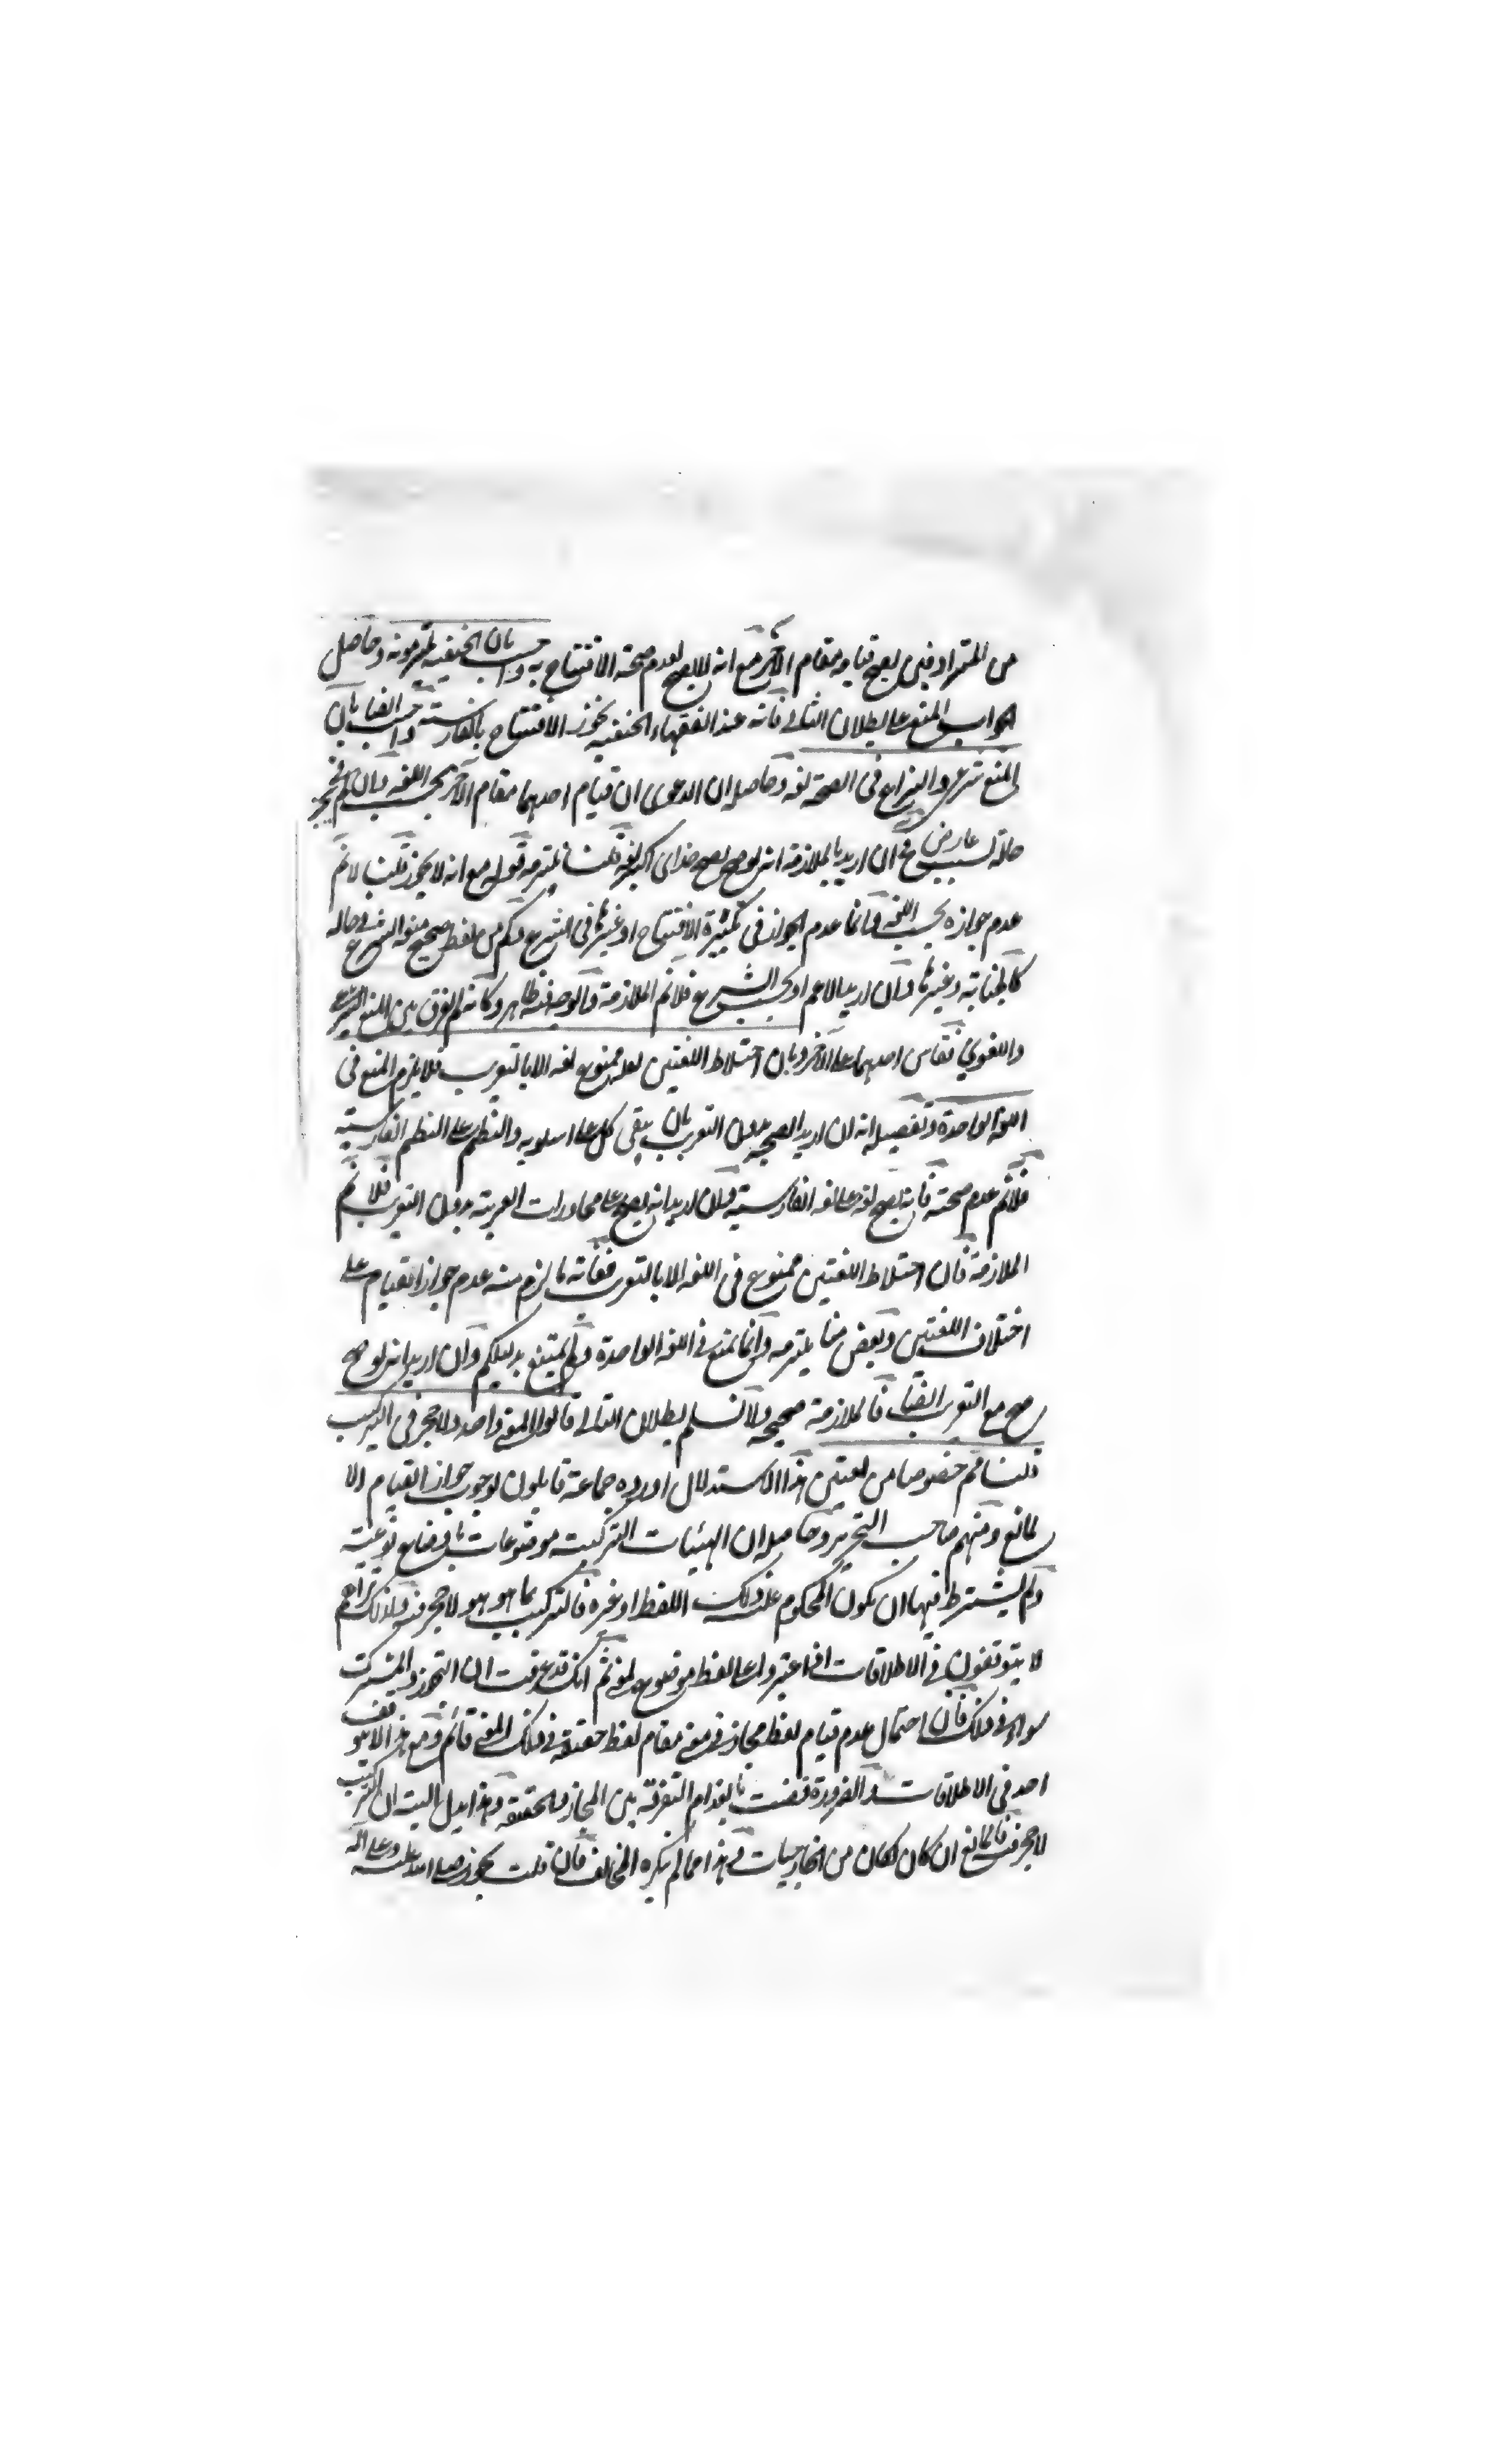 من المترادفين يصح قيامه مقام الآخر مع انه لا يصح لعدم صحة الافتتاح به واجيب بان الحنفية يلتزمونه وحاصل
الجواب المنع على بطلان التالى فانه عند الفقهاء الحنفية يجوز الافتتاح بالفارسية واجيب ايضا بان
المنع شرعى والنزاع فى الصحة لغة وحاصله ان الدعوى ان قيام احدهما مقام الآخر بحسب اللغة وان لم يجز فى
حالة لسبب عارض فح ان اريد بالملازمة انه لو صح لصح خداى اكبر لغة قلنا نلتزمه قوله مع انه لا يجوز قلنا لا نم
عدم جوازه بحسب اللغة وانما عدم الجواز فى تكبيرة الافتتاح او غيرها فى الشرع فكم من لفظ صحيح منعه الشرع فى حالة
كالجنابة وغيرها وان اريد بالاعم او بحسب الشرع فلا نم الملازمة والوجه فيه ظاهر وكانه لم يفرق بين المنع الشرعى
واللغوى فقاس احدهما على الآخر وبان اختلاط اللغتين لعله ممنوع لغة الا بالتعريب فلا يلزم المنع فى
اللغة الواحدة وتفصيله انه ان اريد الصحة بدون التعريب بان يبقى كل على اسلوبه والنظم على النظم الفارسية
فلا نم عدم صحته فانه يصح لغة على لغة الفارسية وان اريد انه يصح على محاورات العربية بدون التعريب فلا نم
الملازمة فان اختلاط اللغتين ممنوع فى اللغة الا بالتعريب فغاية ما لزم منه عدم جواز القيام على
اختلاف اللغتين وبعض منا يلتزمه وانما نمنع فى اللغة الواحدة ولم يمتنع بدليلكم وان اريد انه لو صح
صح مع التعريب ايضا فالملازمة صحيحة ولا نسلم بطلان التالى قالوا المعنى واحد ولا حجر فى التركيب
قلنا نم خصوصا من لغتين هذا الاستدلال اورده جماعة قايلون لوجوب جواز القيام الا
لمانع ومنهم صاحب التحرير وحاصله ان الهيئات التركيبية موضوعات باوضاع نوعية
ولم يشترط فيها ان يكون المحكوم عليه ذلك اللفظ او غيره فالتركيب بما هو هو لا حجر فيه ولذلك تراهم
لا يتوقفون فى الاطلاقات اذا عثروا على لفظ موضوع لمعنى ثم انك قد عرفت ان التجوز والمشترك
سواء فى ذلك فان احتمال عدم قيام لفظ مجاز فى معنى مقام لفظ حقيقة فى ذلك المعنى قائم ومع هذا لا يتوقف
احد فى الاطلاقات والضرورة قضت بانعدام التفرقة بين المجاز والحقيقة وهذا يدل البتة ان التركيب
لا حجر فيه فالمانع ان كان لكان من الخارجيات وهذا مما لم ينكره المخالف فان قلت يجوز صلى الله عليه وعلى آله